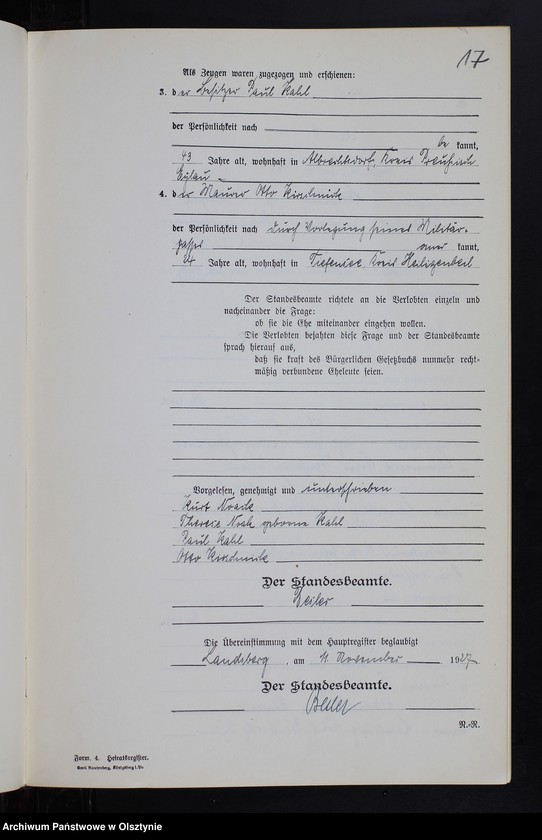 17
Als Zeugen waren zugezogen und erschienen:
3. der Besitzer Paul Kahl
der Persönlichkeit nach
be kannt,
43 Jahre alt, wohnhaft in Albrechtsdorf, Kreis Preußisch
Eylau
4. der Maurer Otto
der Persönlichkeit nach durch Vorlegung seines Militär-
passes aner kannt,
24 Jahre alt, wohnhaft in Tiefensee, Kreis Heiligenbeil
Der Standesbeamte richtete an die Verlobten einzeln und
nacheinander die Frage:
ob sie die Ehe miteinander eingehen wollen.
Die Verlobten bejahten diese Frage und der Standesbeamte
sprach hierauf aus,
daß sie kraft des Bürgerlichen Gesetzbuchs nunmehr recht-
mäßig verbundene Eheleute seien.
Vorgelesen, genehmigt und unterschrieben
Kurt Noack
Therese Noack geborene Kahl
Paul Kahl
Otto
Der Standesbeamte.
Die Übereinstimmung mit dem Hauptregister beglaubigt
Landsberg, am 11. November 1927
Der Standesbeamte.
N.-R.
Form. 4. Heiratsregister.
Emil Rautenberg, Königsberg i. Pr.
Archiwum Państwowe w Olsztynie